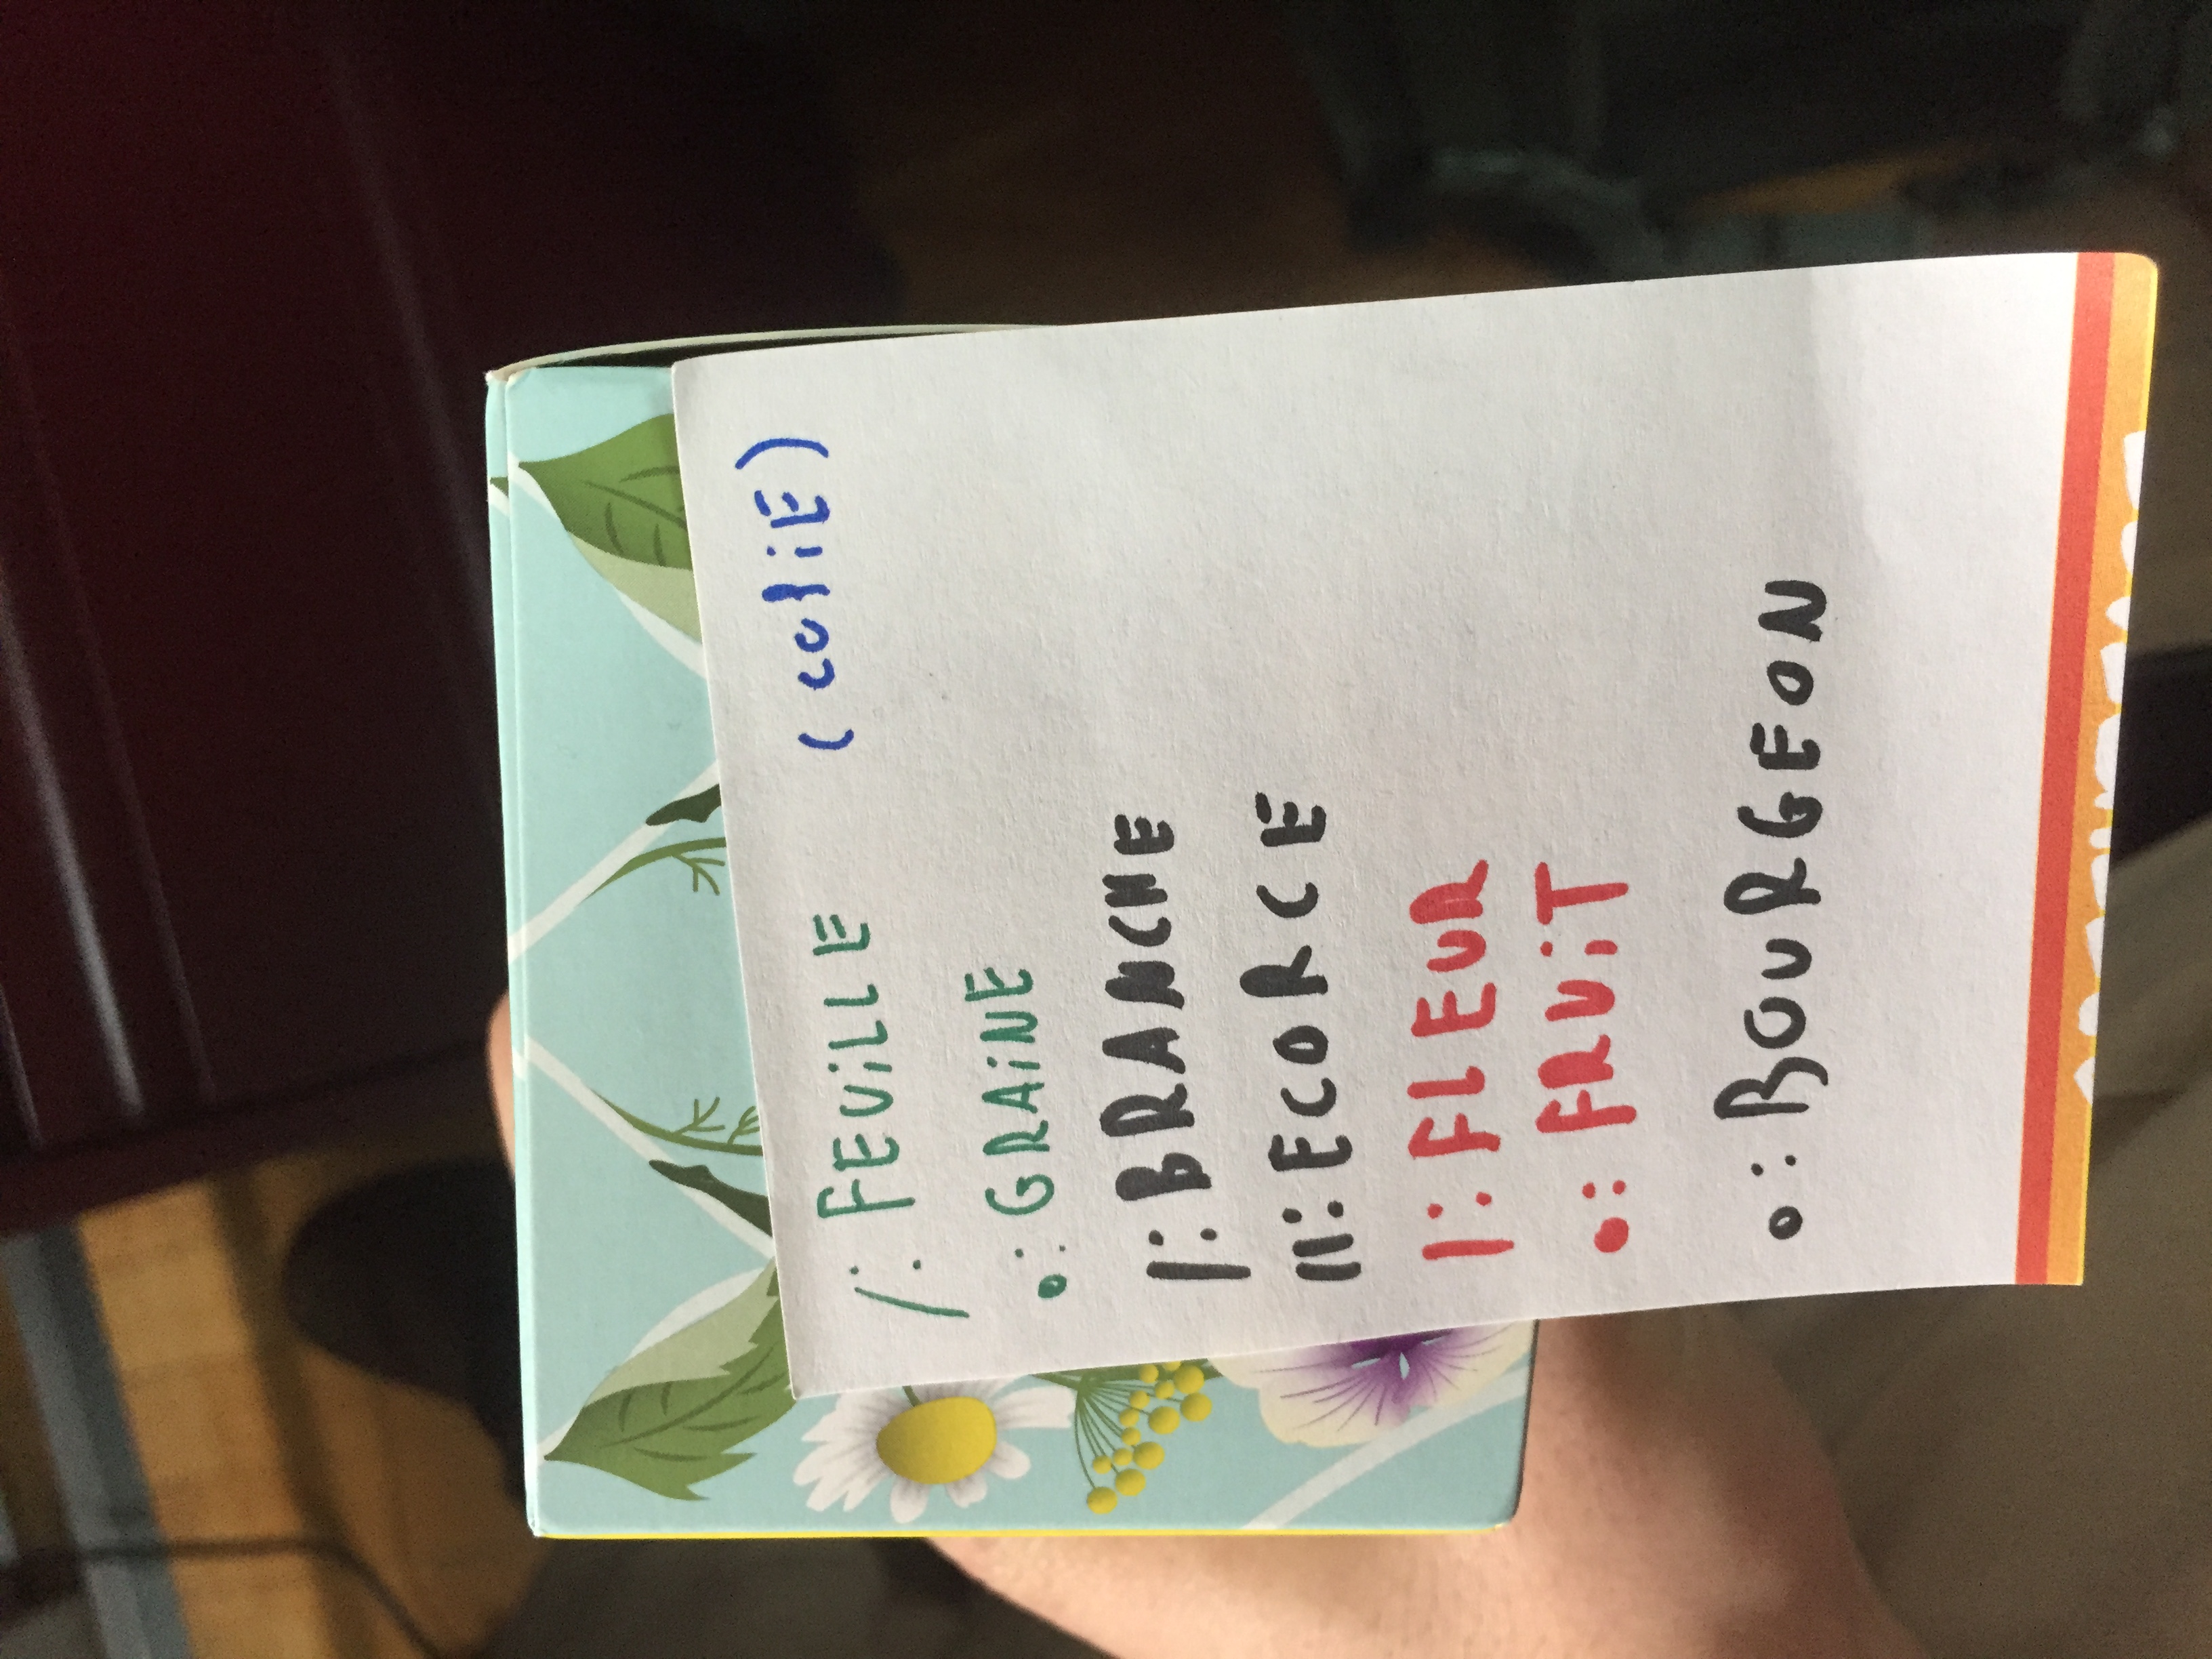 /: FEUiLLE (COPiE)
•: GRAiNE
|: BRANCHE
||: ECORCE
|: FLEUR
•: FRUiT
o: BOURGEON